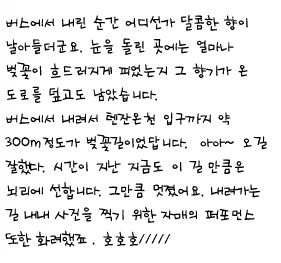 버스에서 내린 순간 어디선가 달콤한 향이
날아들더군요. 눈을 돌린 곳에는 얼마나
벚꽃이 흐드러지게 피었는지 그 향기가 온
도로를 덮고도 남았습니다.
버스에서 내려서 텐잔온천 입구까지 약
300m정도가 벚꽃길이었답니다. 아아~ 오길
잘했다. 시간이 지난 지금도 이 길 만큼은
뇌리에 선합니다. 그만큼 멋졌어요. 내려가는
길 내내 사진을 찍기 위한 자매의 퍼포먼스
또한 화려했죠. 호호호/////